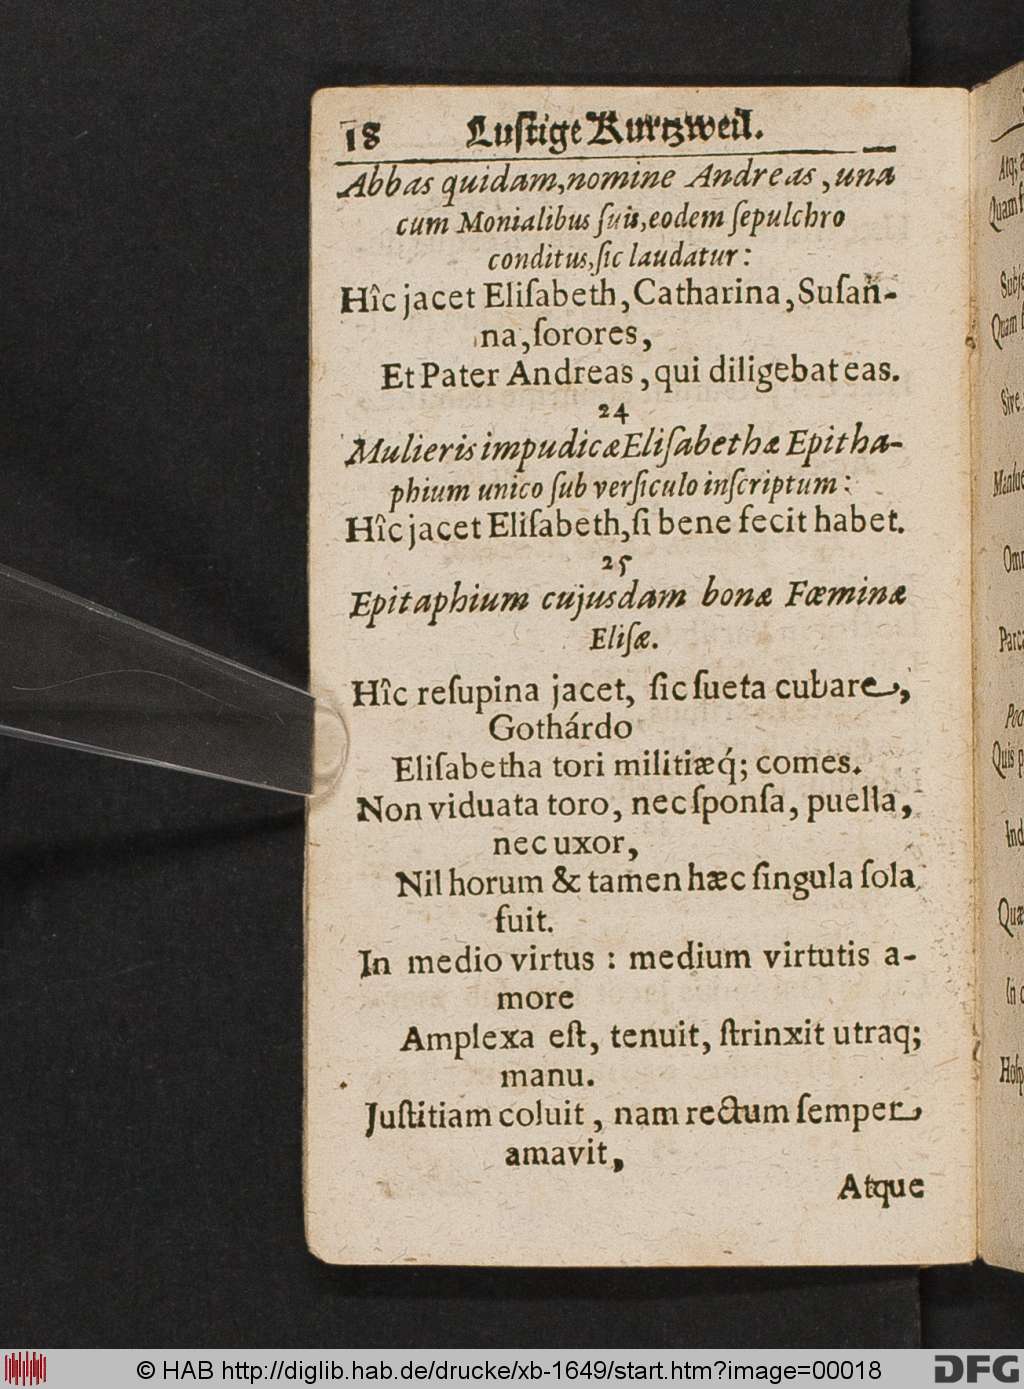 18 Luſtige Kurtzweil.
Abbas quidam, nomine Andreas, una
cum Monialibus ſuis, eodem ſepulchro
conditus, ſic laudatur:
Hîc jacet Eliſabeth, Catharina, Suſan-
na, ſorores,
Et Pater Andreas, qui diligebat eas.
24
Mulieris impudicæ Eliſabethæ Epitha-
phium unico ſub verſiculo inſcriptum:
Hîc jacet Eliſabeth, ſi bene fecit habet.
25
Epitaphium cujusdam bonæ Fœminæ
Eliſæ.
Hîc reſupina jacet, ſic ſueta cubare,
Gothárdo
Eliſabetha tori militiæq́; comes.
Non viduata toro, nec ſponſa, puella,
nec uxor,
Nil horum & tamen hæc ſingula ſola
fuit.
In medio virtus : medium virtutis a-
more
Amplexa eſt, tenuit, ſtrinxit utraq;
manu.
Juſtitiam coluit, nam rectum ſemper
amavit,
Atque
Quam
Subſe
Quam
Sive
Manſue
Omn
Parca
Quis p
Ind
Quæ
In
Hoſp
© HAB http://diglib.hab.de/drucke/xb-1649/start.htm?image=00018
DFG